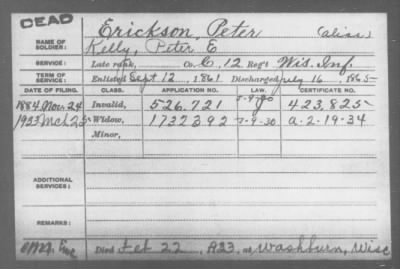 DEAD
NAME OF SOLDIER: Erickson, Peter (alias)
Kelly, Peter E
SERVICE: Late rank, Co. C, 12 Reg't Wis. Inf.
TERM OF SERVICE: Enlisted Sept 12, 1861 Discharged July 16, 1865
DATE OF FILING. CLASS. APPLICATION NO. LAW. CERTIFICATE NO.
1884 Nov. 24 Invalid, 526.721 423,825
1923 Mch 25 Widow, 1732392 A-2-19-34
Minor,
ADDITIONAL SERVICES:
REMARKS:
Died Feb 22, 1923, at Washburn, Wisc